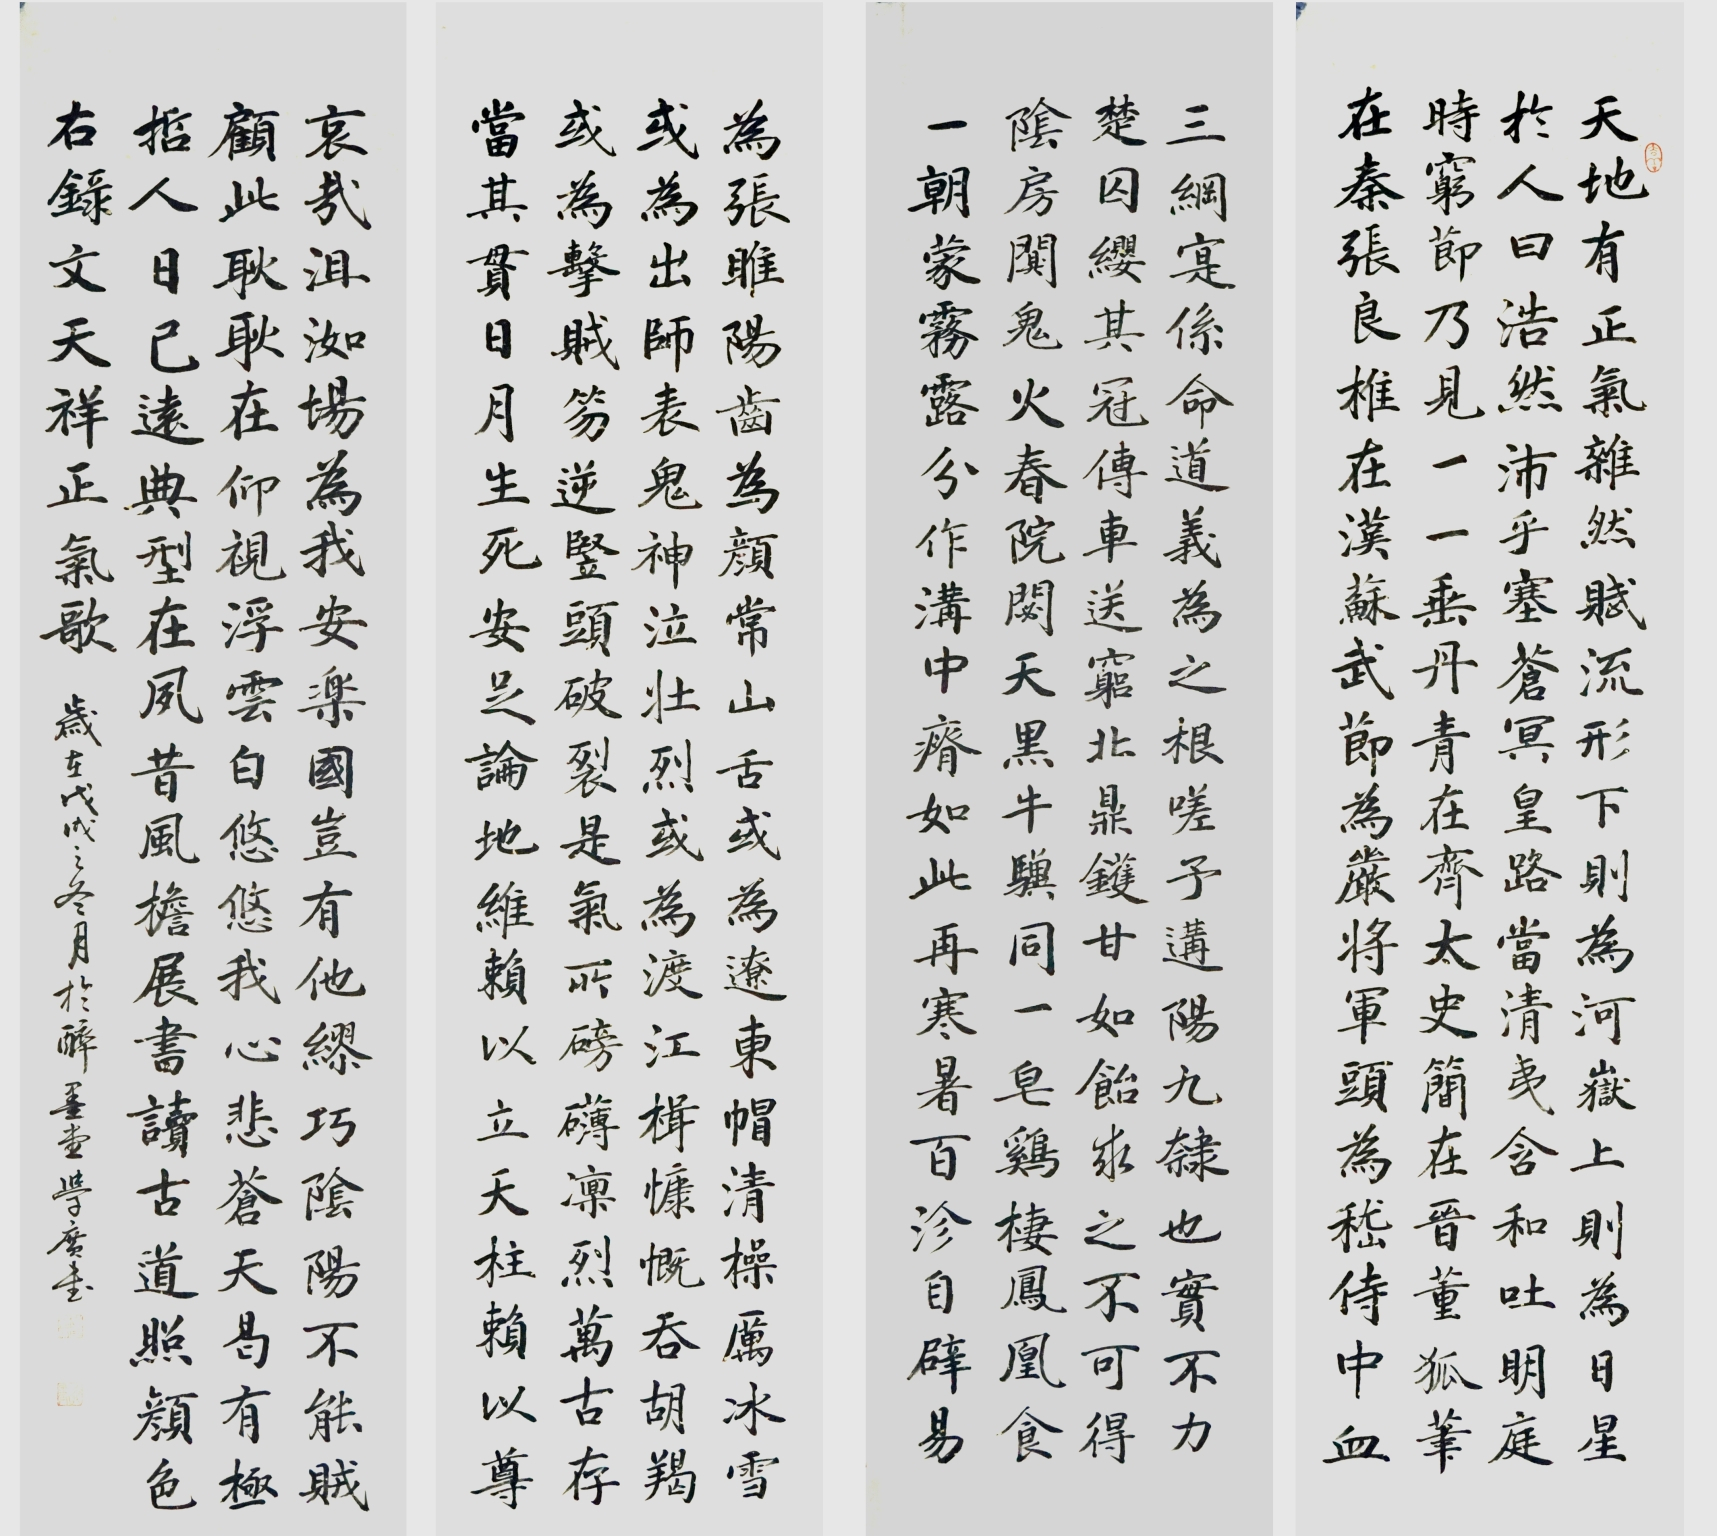 天地有正氣雜然賦流形下則為河嶽上則為日星
於人曰浩然沛乎塞蒼冥皇路當清夷含和吐明庭
時窮節乃見一一垂丹青在齊太史簡在晉董狐筆
在秦張良椎在漢蘇武節為嚴将軍頭為嵇侍中血
三綱寔係命道義為之根嗟予遘陽九隸也實不力
楚囚纓其冠傳車送窮北鼎鑊甘如飴求之不可得
陰房闃鬼火春院閟天黑牛驥同一皂鷄棲鳳凰食
一朝蒙霧露分作溝中瘠如此再寒暑百沴自辟易
為張睢陽齒為顏常山舌或為遼東帽清操厲冰雪
或為出師表鬼神泣壯烈或為渡江楫慷慨吞胡羯
或為擊賊笏逆豎頭破裂是氣所磅礴凜烈萬古存
當其貫日月生死安足論地維賴以立天柱賴以尊
哀哉沮洳場為我安樂國豈有他繆巧陰陽不能賊
顧此耿耿在仰視浮雲白悠悠我心悲蒼天曷有極
哲人日已遠典型在夙昔風檐展書讀古道照顏色
右錄文天祥正氣歌 歲在戊戌之冬月於醉墨堂學廣書